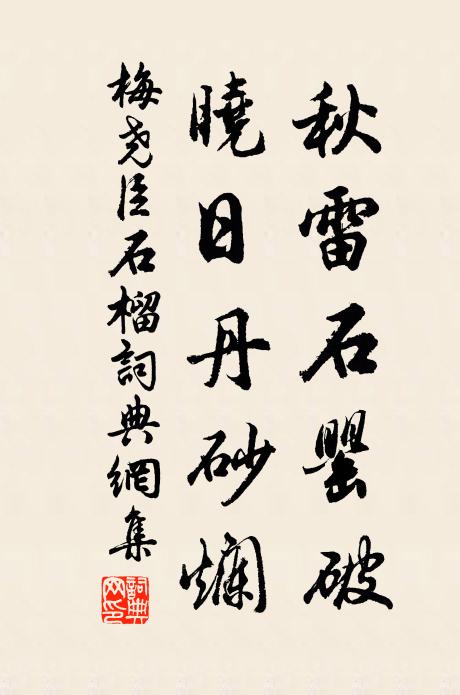 秋雷石罌破
曉日丹砂爛
梅堯臣石榴詞典網集
詞典網印